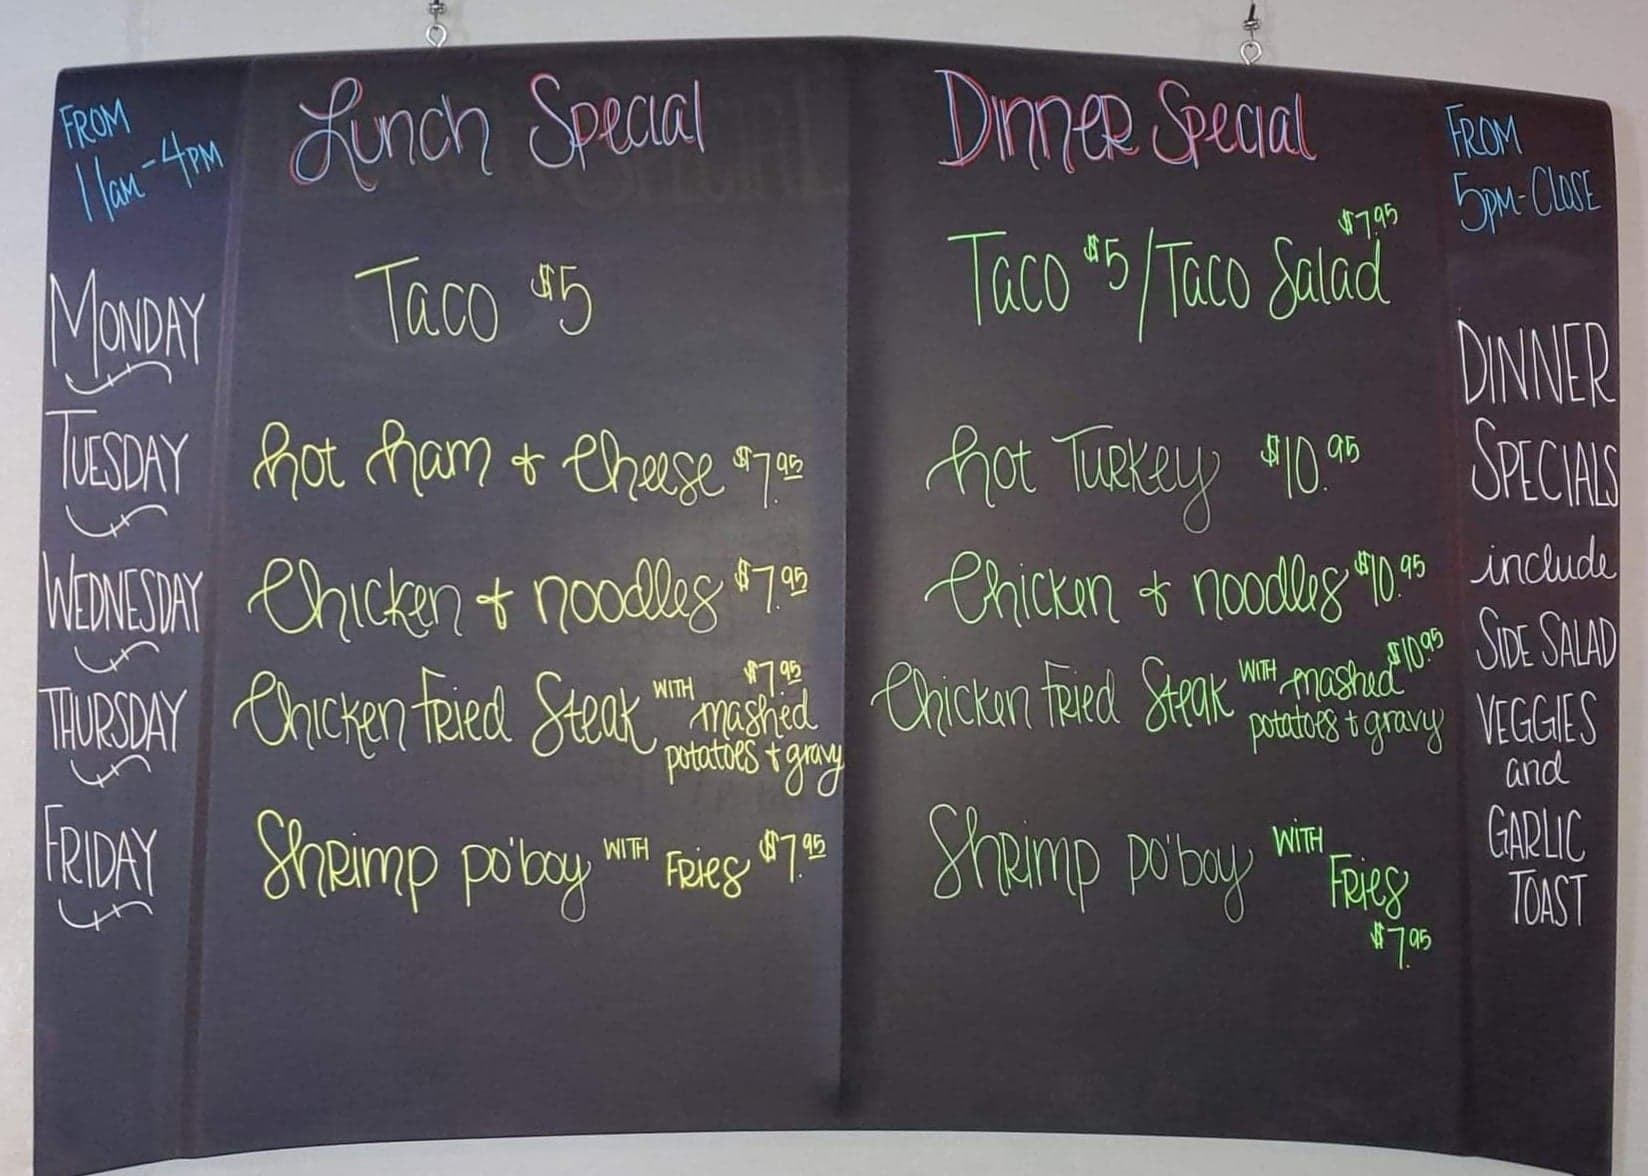 FROM
11am-4PM
Lunch Special
Dinner Special
FROM
5PM-CLOSE
MONDAY
Taco $5
Taco $5/Taco Salad $7.95
TUESDAY
hot ham + Cheese $7.95
hot Turkey $10.95
WEDNESDAY
Chicken + noodles $7.95
Chicken + noodles $10.95
THURSDAY
Chicken Fried Steak WITH mashed $7.95
potatoes + gravy
Chicken Fried Steak WITH mashed $10.95
potatoes + gravy
FRIDAY
Shrimp po'boy WITH Fries $7.95
Shrimp po'boy WITH
Fries
$7.95
DINNER
SPECIALS
include
SIDE SALAD
VEGGIES
and
GARLIC
TOAST